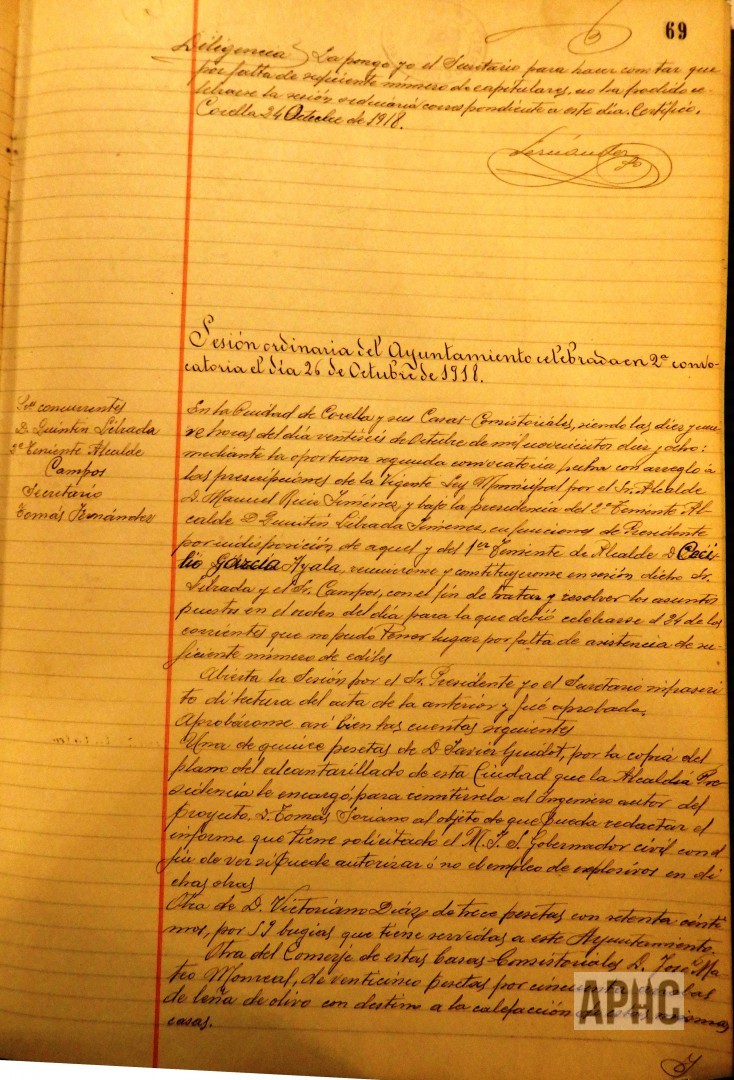 69
Diligencia La pongo yo el Secretario para hacer constar que
por falta de suficiente número de capitulares, no ha podido ce-
lebrarse la sesión ordinaria correspondiente a este día. Certifico.
Corella 24 Octubre de 1918.
Fernández
Sesión ordinaria del Ayuntamiento celebrada en 2ª convo-
catoria el día 26 de Octubre de 1918.
Sres concurrentes
D. Quintín Librada
2º Teniente Alcalde
Campos
Secretario
Tomás Fernández
En la Ciudad de Corella y sus Casas Consistoriales, siendo las diez y nue-
ve horas del día ventiseis de Octubre de mil novecientos diez y ocho:
mediante la oportuna segunda convocatoria hecha con arreglo á
las prescripciones de la vigente Ley Municipal por el Sr. Alcalde
D. Manuel Ruiz Jiménez, y bajo la presidencia del 2º Teniente Al-
calde D. Quintín Librada Jimenez, en funciones de Presidente
por indisposición de aquel y del 1er Teniente de Alcalde D. Ceci-
lio García Ayala, reunieronse y constituyeronse en sesión dicho Sr.
Librada y el Sr. Campos, con el fin de tratar y resolver los asuntos
puestos en el orden del día para la que debió celebrarse el 24 de los
corrientes que no pudo tener lugar por falta de asistencia de su-
ficiente número de ediles
Abierta la Sesión por el Sr. Presidente yo el Secretario infrascri-
to di lectura del acta de la anterior y fué aprobada.
Aprobáronse así bien las cuentas siguientes
Una de quince pesetas de D. Javier, por la copia del
plano del alcantarillado de esta Ciudad que la Alcaldía Pre-
sidencia le encargó, para remitirsela al Ingeniero autor del
proyecto, D. Tomás Soriano al objeto de que pueda redactar el
informe que tiene solicitado el M. I. S. Gobernador civil con el
fin de ver si puede autorizar ó no el empleo de explosivos en di-
chas obras
Otra de D. Victoriano Díaz de trece pesetas con setenta cénti-
mos, por bugias que tiene servidas a este Ayuntamiento.
Otra del Conserje de estas Casas Consistoriales D. José Ma-
teo Monreal, de venticinco pesetas por cincuenta
de leña de olivo con destino a la calefacción de estas mismas
casas.
APHC